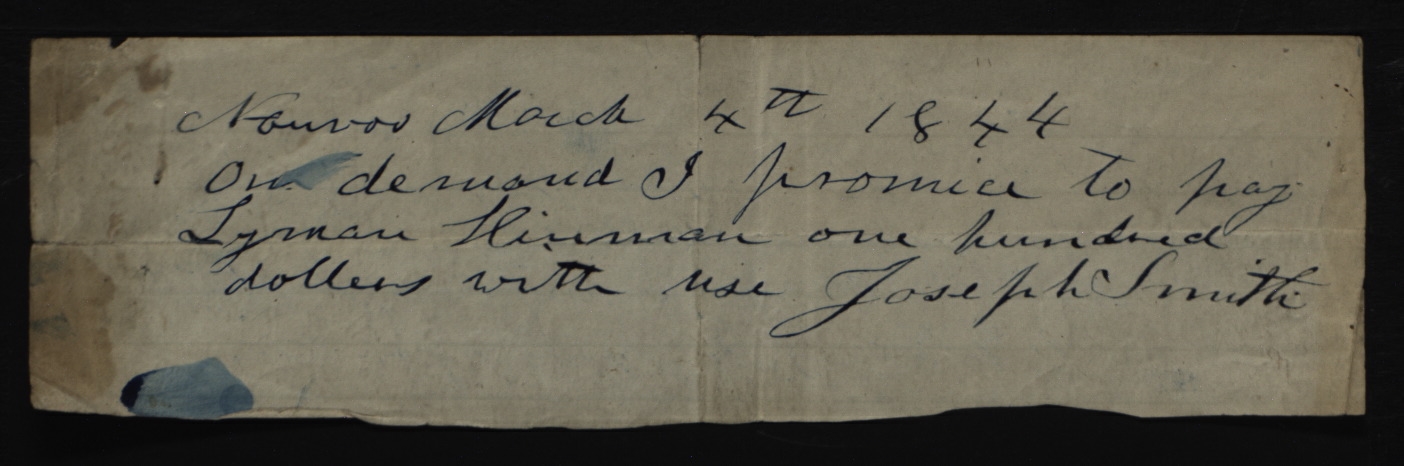 Nauvoo March 4th 1844
On demand I promice to pay
Lyman Hinman one hundred
dollers with use Joseph Smith